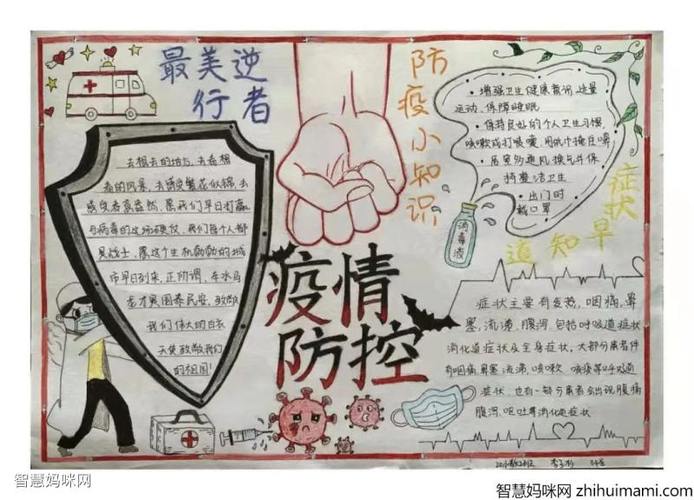 最美逆
行者
去想去的地方，去看想
看的风景，去感受繁花似锦，去
感受春意盎然，愿我们早日打赢
与病毒的这场硬仗，我们每个人都
是战士，愿这个生机勃勃的城
市早日到来，正阳调，车水马
龙才是国泰民安，致敬
我们伟大的白衣
天使致敬我们
的祖国！
防疫小知识
增强卫生健康意识，适量
运动、保障睡眠
保持良好的个人卫生习惯，
咳嗽或打喷嚏，用纸巾掩住口鼻
居室多通风换气并保
持整洁卫生
出门时
戴口罩
消毒液
疫情
防控
症状
早知道
症状主要有发热，咽痛，鼻
塞，流涕，腹泻，包括呼吸道症状
消化道症状及全身症状，大部分患者伴
有咽痛鼻塞流涕，咳嗽、咳痰等呼吸道
症状，也有一部分患者会出现腹痛
腹泻、呕吐等消化道症状
智慧妈咪网
智慧妈咪网 zhihuimami.com